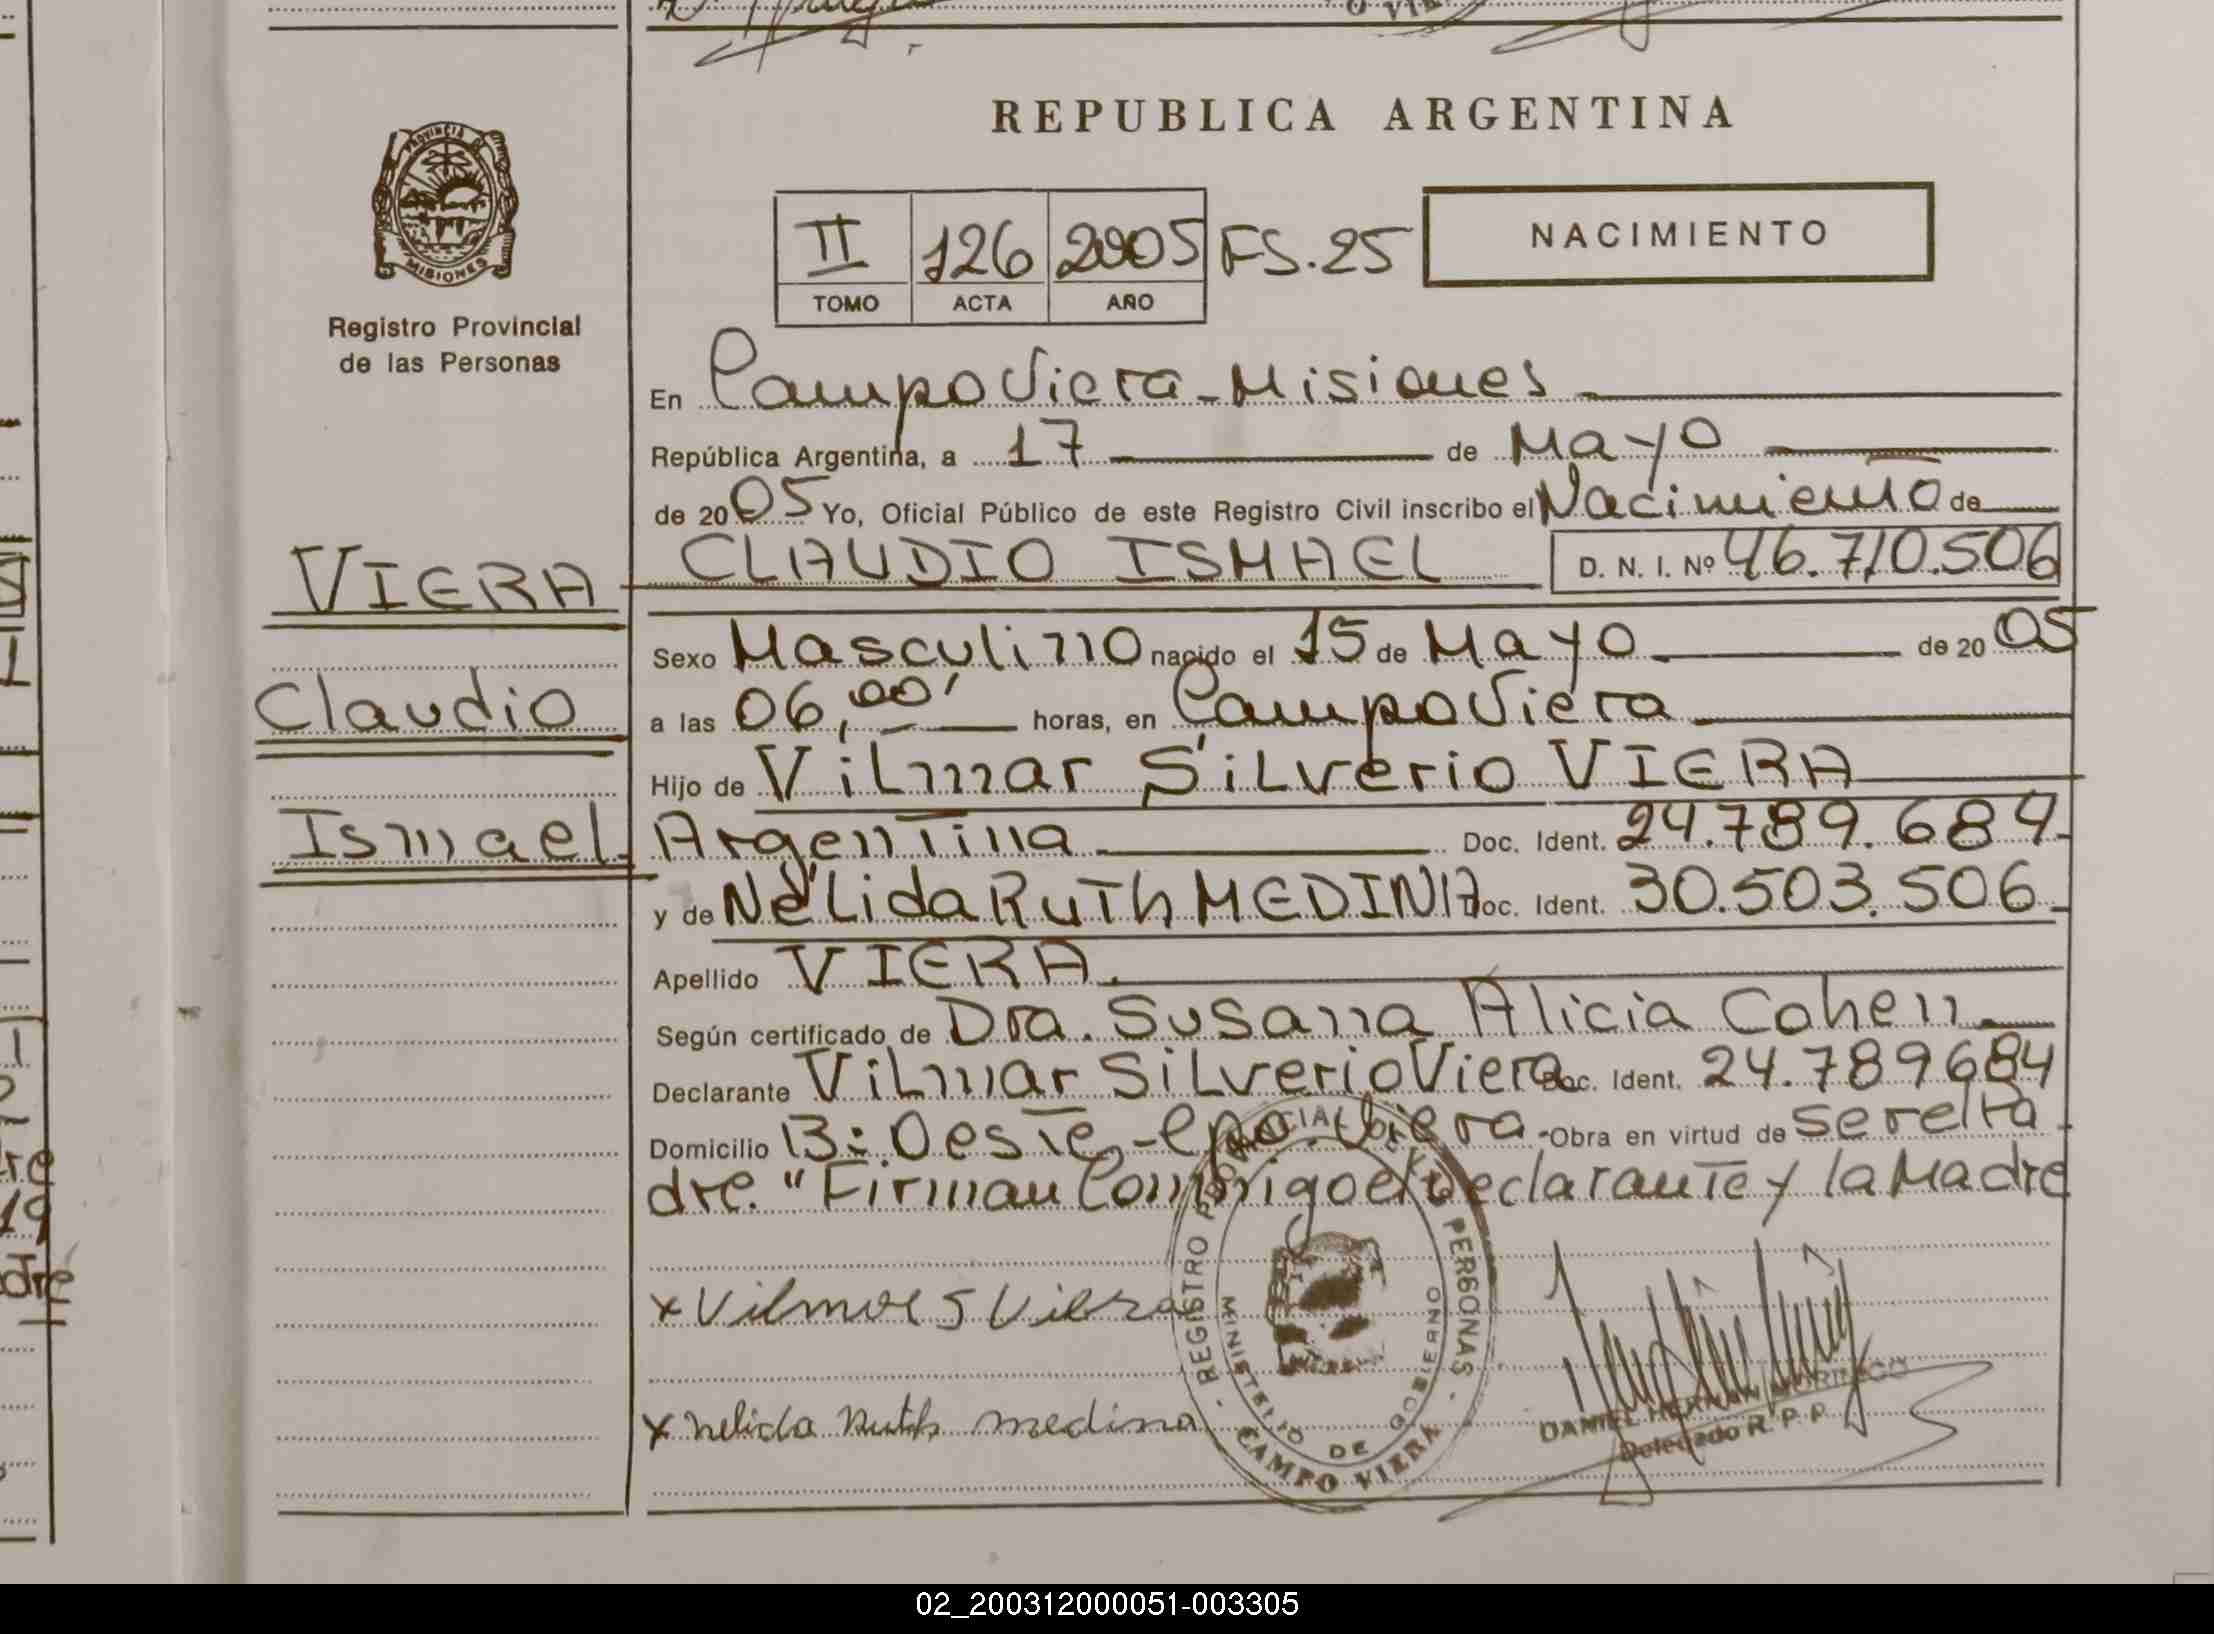 REPUBLICA ARGENTINA
PROVINCIA DE
MISIONES
Registro Provincial
de las Personas
II 126 2005 FS.25
TOMO ACTA AÑO
NACIMIENTO
En Campo Viera - Misiones
República Argentina, a 17 de Mayo
de 2005 Yo, Oficial Público de este Registro Civil inscribo el Nacimiento de
VIERA
CLAUDIO ISMAEL D. N. I. Nº 46.710.506
Sexo Masculino nacido el 15 de Mayo de 2005
Claudio
a las 06,00' horas, en Campo Viera
Hijo de Vilmar Silverio VIERA
Ismael
Argentina Doc. Ident. 24.789.684
y de Nélida Ruth MEDINA Doc. Ident. 30.503.506
Apellido VIERA.
Según certificado de Dra. Susana Alicia Cohen
Declarante Vilmar Silverio Viera Doc. Ident. 24.789684
Domicilio B: Oeste - Cpo. Viera - Obra en virtud de ser el Pa
dre. "Firman Conmigo el Declarante y la Madre
x Vilmar S Viera
x nelida Ruth medina
REGISTRO PROVINCIAL DE LAS PERSONAS
MINISTERIO DE GOBIERNO
CAMPO VIERA
DANIEL HERNAN MORINIGO
Delegado R. P. P.
02_200312000051-003305